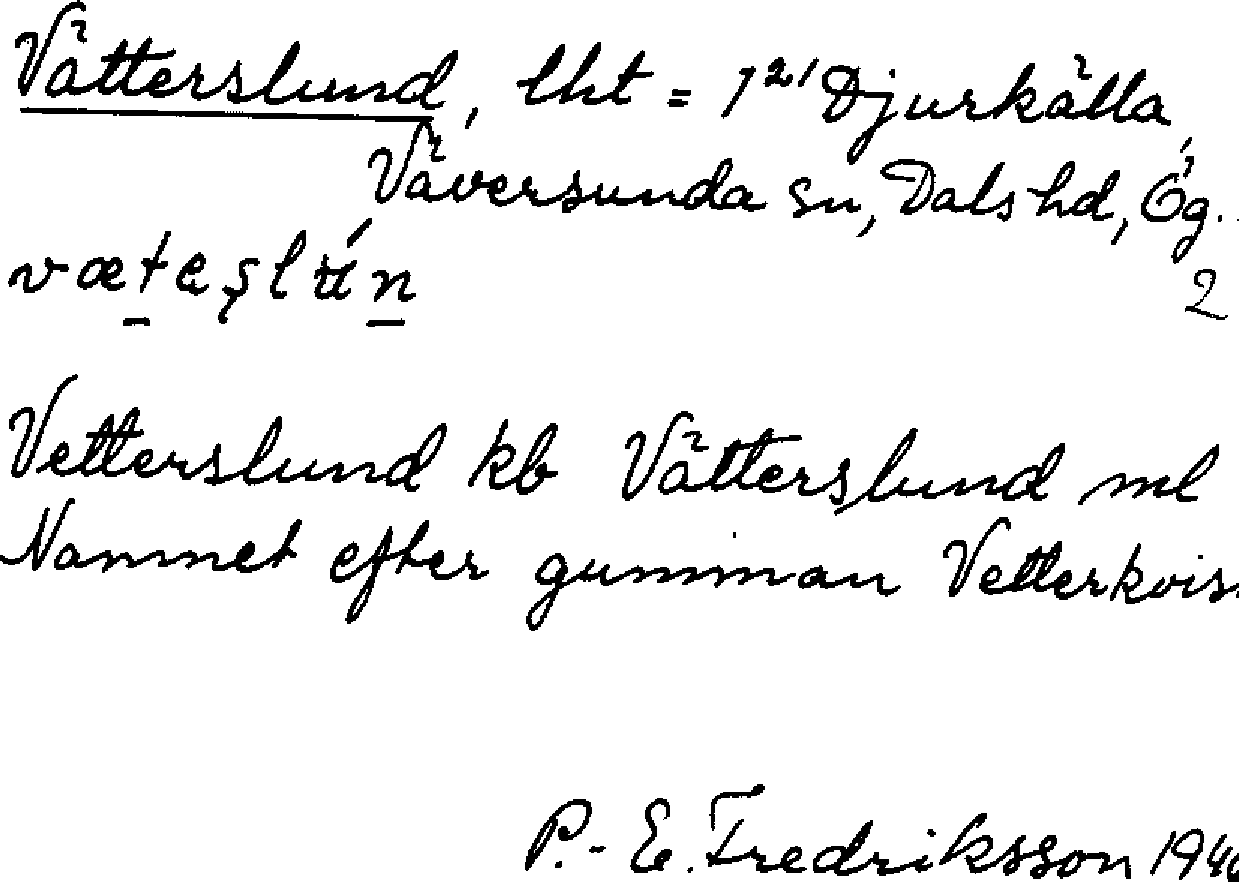 Vätterslund, lht = 1²¹ Djurkälla,
Väversunda sn, Dals hd, Ög.
væteşlún
2
Vetterslund kb Vätterslund ml
Namnet efter gumman
P.-E. Fredriksson